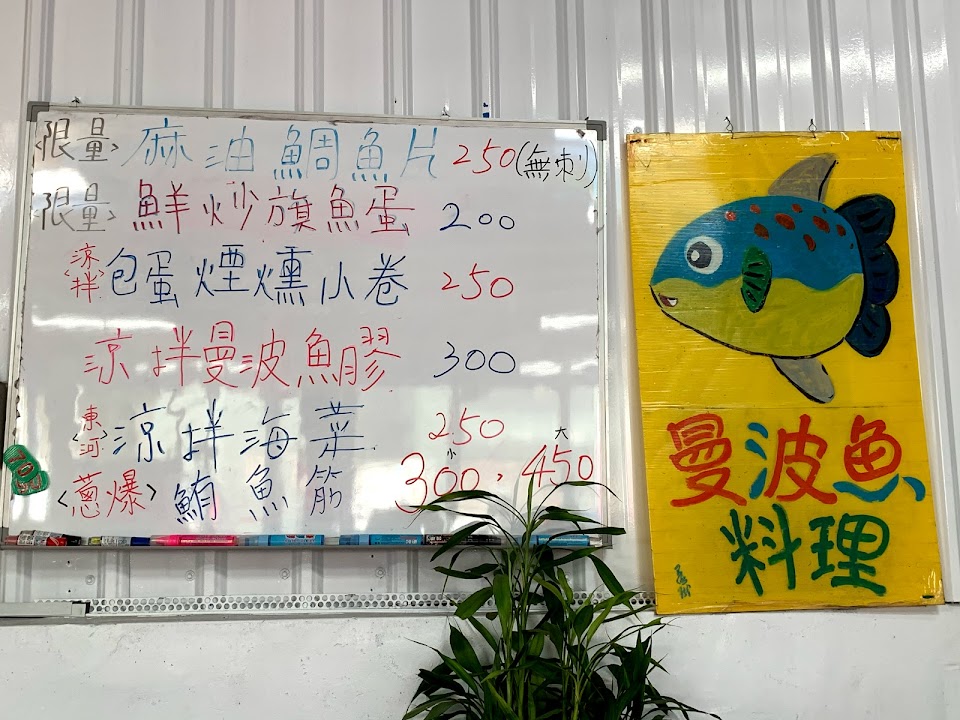 <限量> 麻油鯛魚片 250(無刺)
<限量> 鮮炒旗魚蛋 200
<涼拌> 包蛋煙燻小卷 250
涼拌曼波魚膠 300
<東河> 涼拌海菜 250
<蔥爆> 鮪魚筋 小300,大450
曼波魚
料理